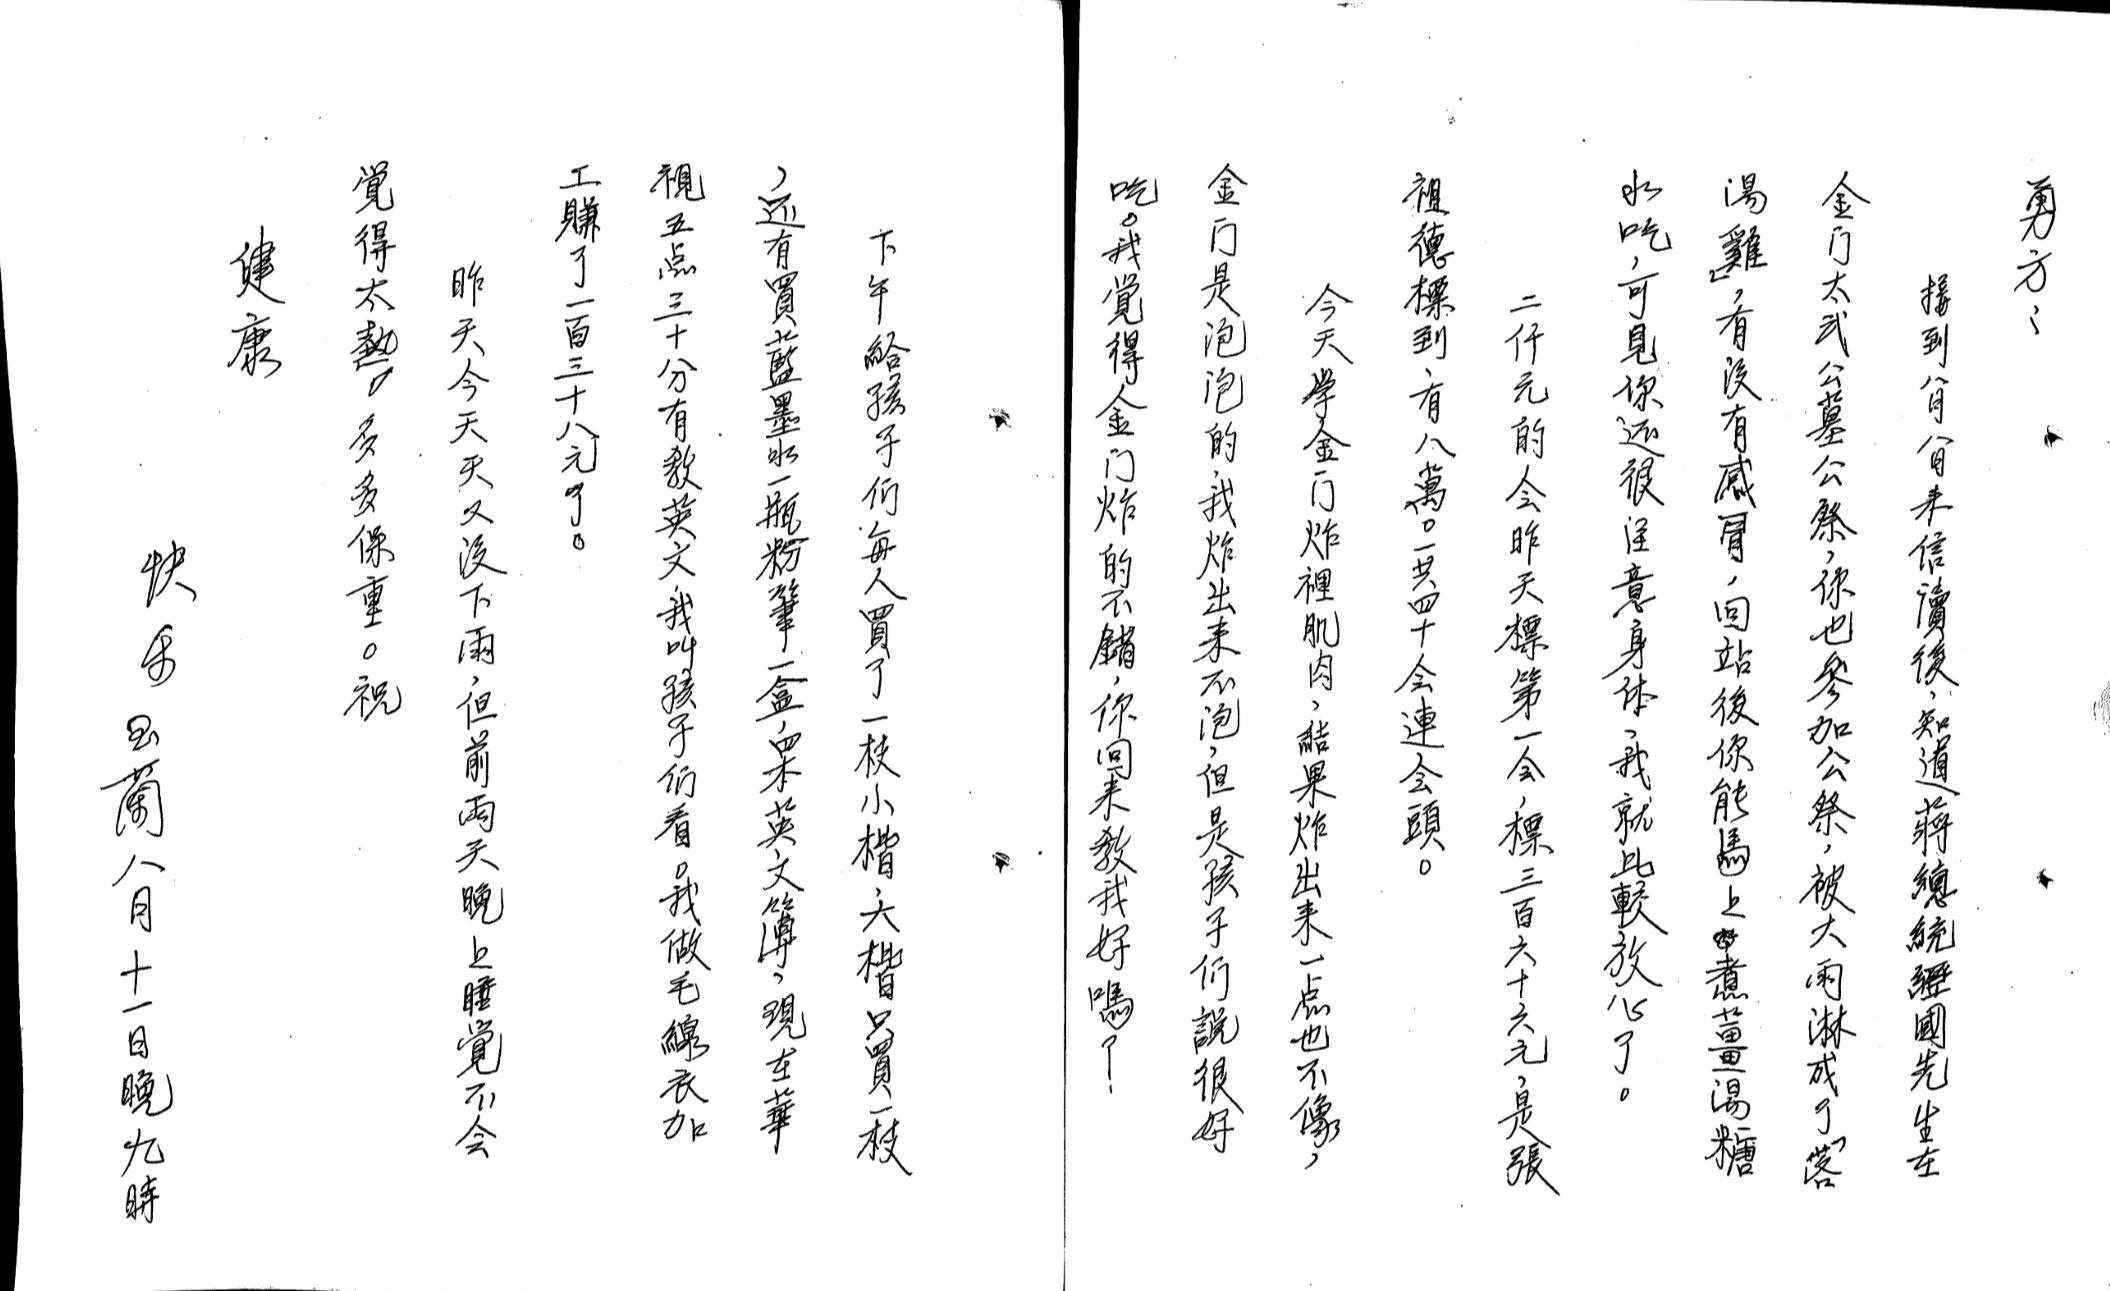 勇方：
接到八月八日来信讀後，知道蔣總統經國先生在
金门太武公墓公祭，你也參加公祭，被大雨淋成了「落
湯雞」，有没有感冒，回站後你能馬上煮薑湯糖
水吃，可見你还很注意身体，我就比較放心了。
二仟元的会昨天標第一会，標三百六十六元，是張
祖德標到，有八萬。一共四十会連会頭。
今天學金门炸裡肌肉，結果炸出来一点也不像，
金门是泡泡的，我炸出来不泡，但是孩子们說很好
吃。我覺得金门炸的不錯，你回来教我好嗎？
下午給孩子们每人買了一枝小楷，大楷只買一枝
，还有買藍墨水一瓶粉筆一盒，四本英文簿，現在華
視五点三十分有教英文，我叫孩子们看。我做毛線衣加
工賺了一百三十八元了。
昨天今天天又没下雨，但前兩天晚上睡覺不会
覺得太熱，多多保重。祝
健康
快乐
玉蘭八月十一日晚九時